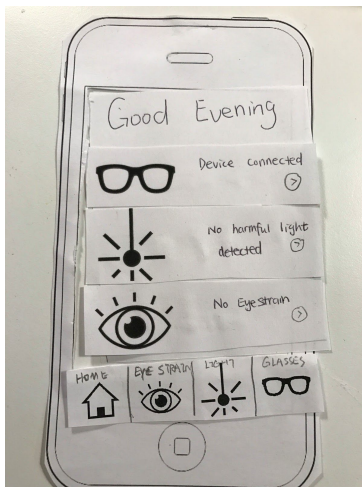 Good Evening
Device connected
No harmful light
detected
No Eyestrain
HOME
EYE STRAIN
LIGHT
GLASSES